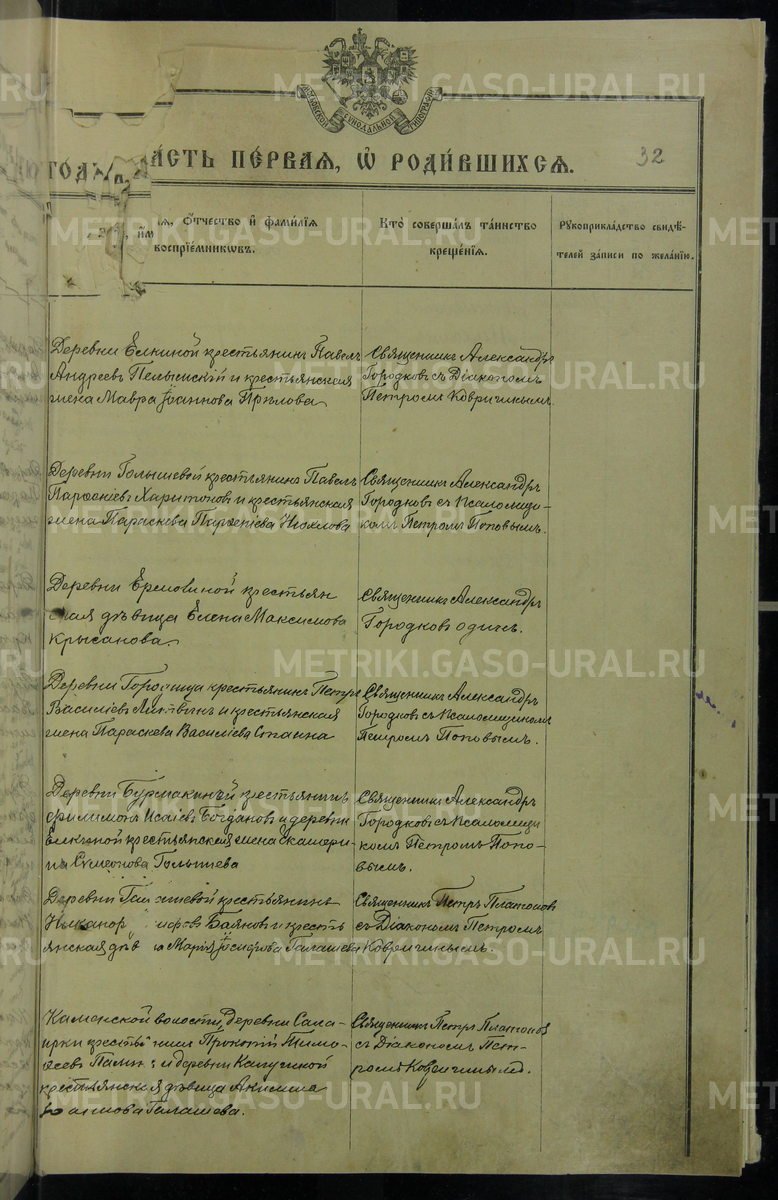 МОСКОВСКОЙ СѴНОДАЛЬНОЙ ТИПОГРАФІИ
ГОДЪ, ЧАСТЬ ПЕ́РВАЯ, Ѡ҆ РОДИ́ВШИХСѦ. 32
ІѦ, Ѻ҆́ТЧЕСТВО И҆ ФАМИ́ЛІѦ ВОСПРІЕ́МНИКѠВЪ.
КТО̀ СОВЕРША́ЛЪ ТА́ИНСТВО КРЕЩЕ́НІѦ.
РѸКОПРИКЛА́ДСТВО СВИДѢ́ТЕЛЕЙ ЗА́ПИСИ ПО ЖЕЛА́НІЮ.
Деревни Елкиной крестьянинъ Павелъ
Андреевъ Пелымскій и крестьянская
жена Мавра Іоаннова
Священникъ Александръ
Городковъ съ Діакономъ
Петромъ Ковригинымъ
Деревни Голышевой крестьянинъ Павелъ
Харитоновъ и крестьянская
жена Параскева
Священникъ Александръ
Городковъ съ Псаломщи-
комъ Петромъ Поповымъ.
Деревни крестьян
ская дѣвица Елена Максимова
Крысанова.
Священникъ Александръ
Городковъ одинъ.
Деревни Городища крестьянинъ Петръ
Василіевъ и крестьянская
жена Параскева Василіева
Священникъ Александръ
Городковъ съ Псаломщикомъ
Петромъ Поповымъ.
Деревни крестьянинъ
Филимонъ Исаіевъ Богдановъ и деревни
Елкиной крестьянская жена Екатери-
на Симеонова Голышева
Священникъ Александръ
Городковъ съ Псаломщи
комъ Петромъ Попо-
вымъ.
Деревни крестьянинъ
Баяновъ и кресть
янская Марія Іосифова Галашева
Священникъ Петръ Платоновъ
съ Діакономъ Петромъ
Ковригинымъ.
Каменской волости, деревни
Прокопій Тимо
ѳеевъ и деревни
крестьянская дѣвица Акилина
Галашева.
Священникъ Петръ Платоновъ
съ Діакономъ Пет-
ромъ Ковригинымъ.
METRIKI.GASO-URAL.RU